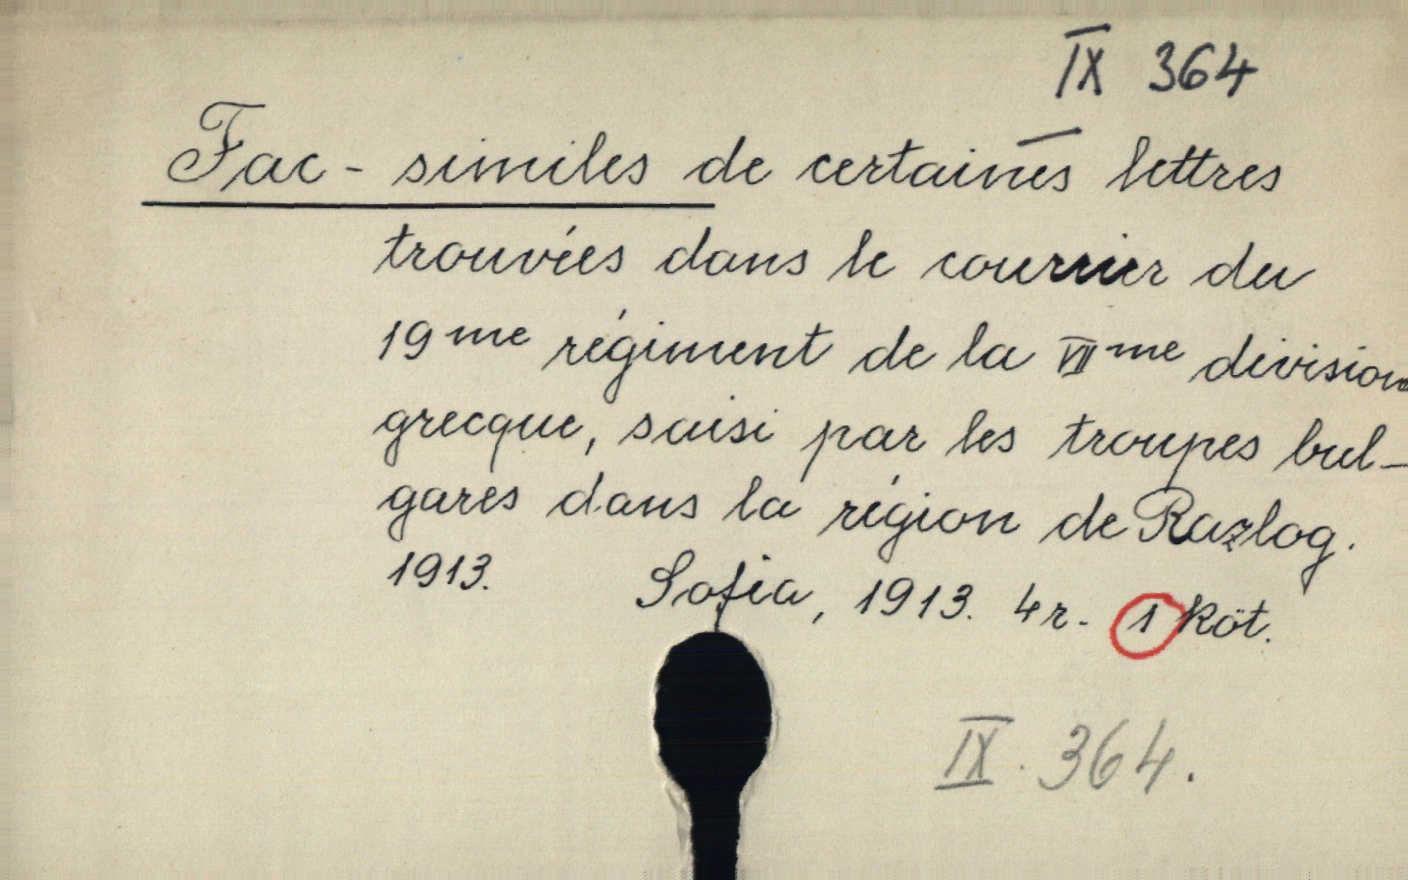 IX 364
Fac-similes de certaines lettres
trouvées dans le courrier du
19me régiment de la VIIme division
grecque, saisi par les troupes bul-
gares dans la région de Razlog.
1913. Sofia, 1913. 4r. 1 köt.
IX. 364.